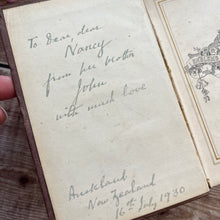 To Dear, dear
Nancy
from her brother
John
with much love
Auckland
New Zealand
16th July 1930